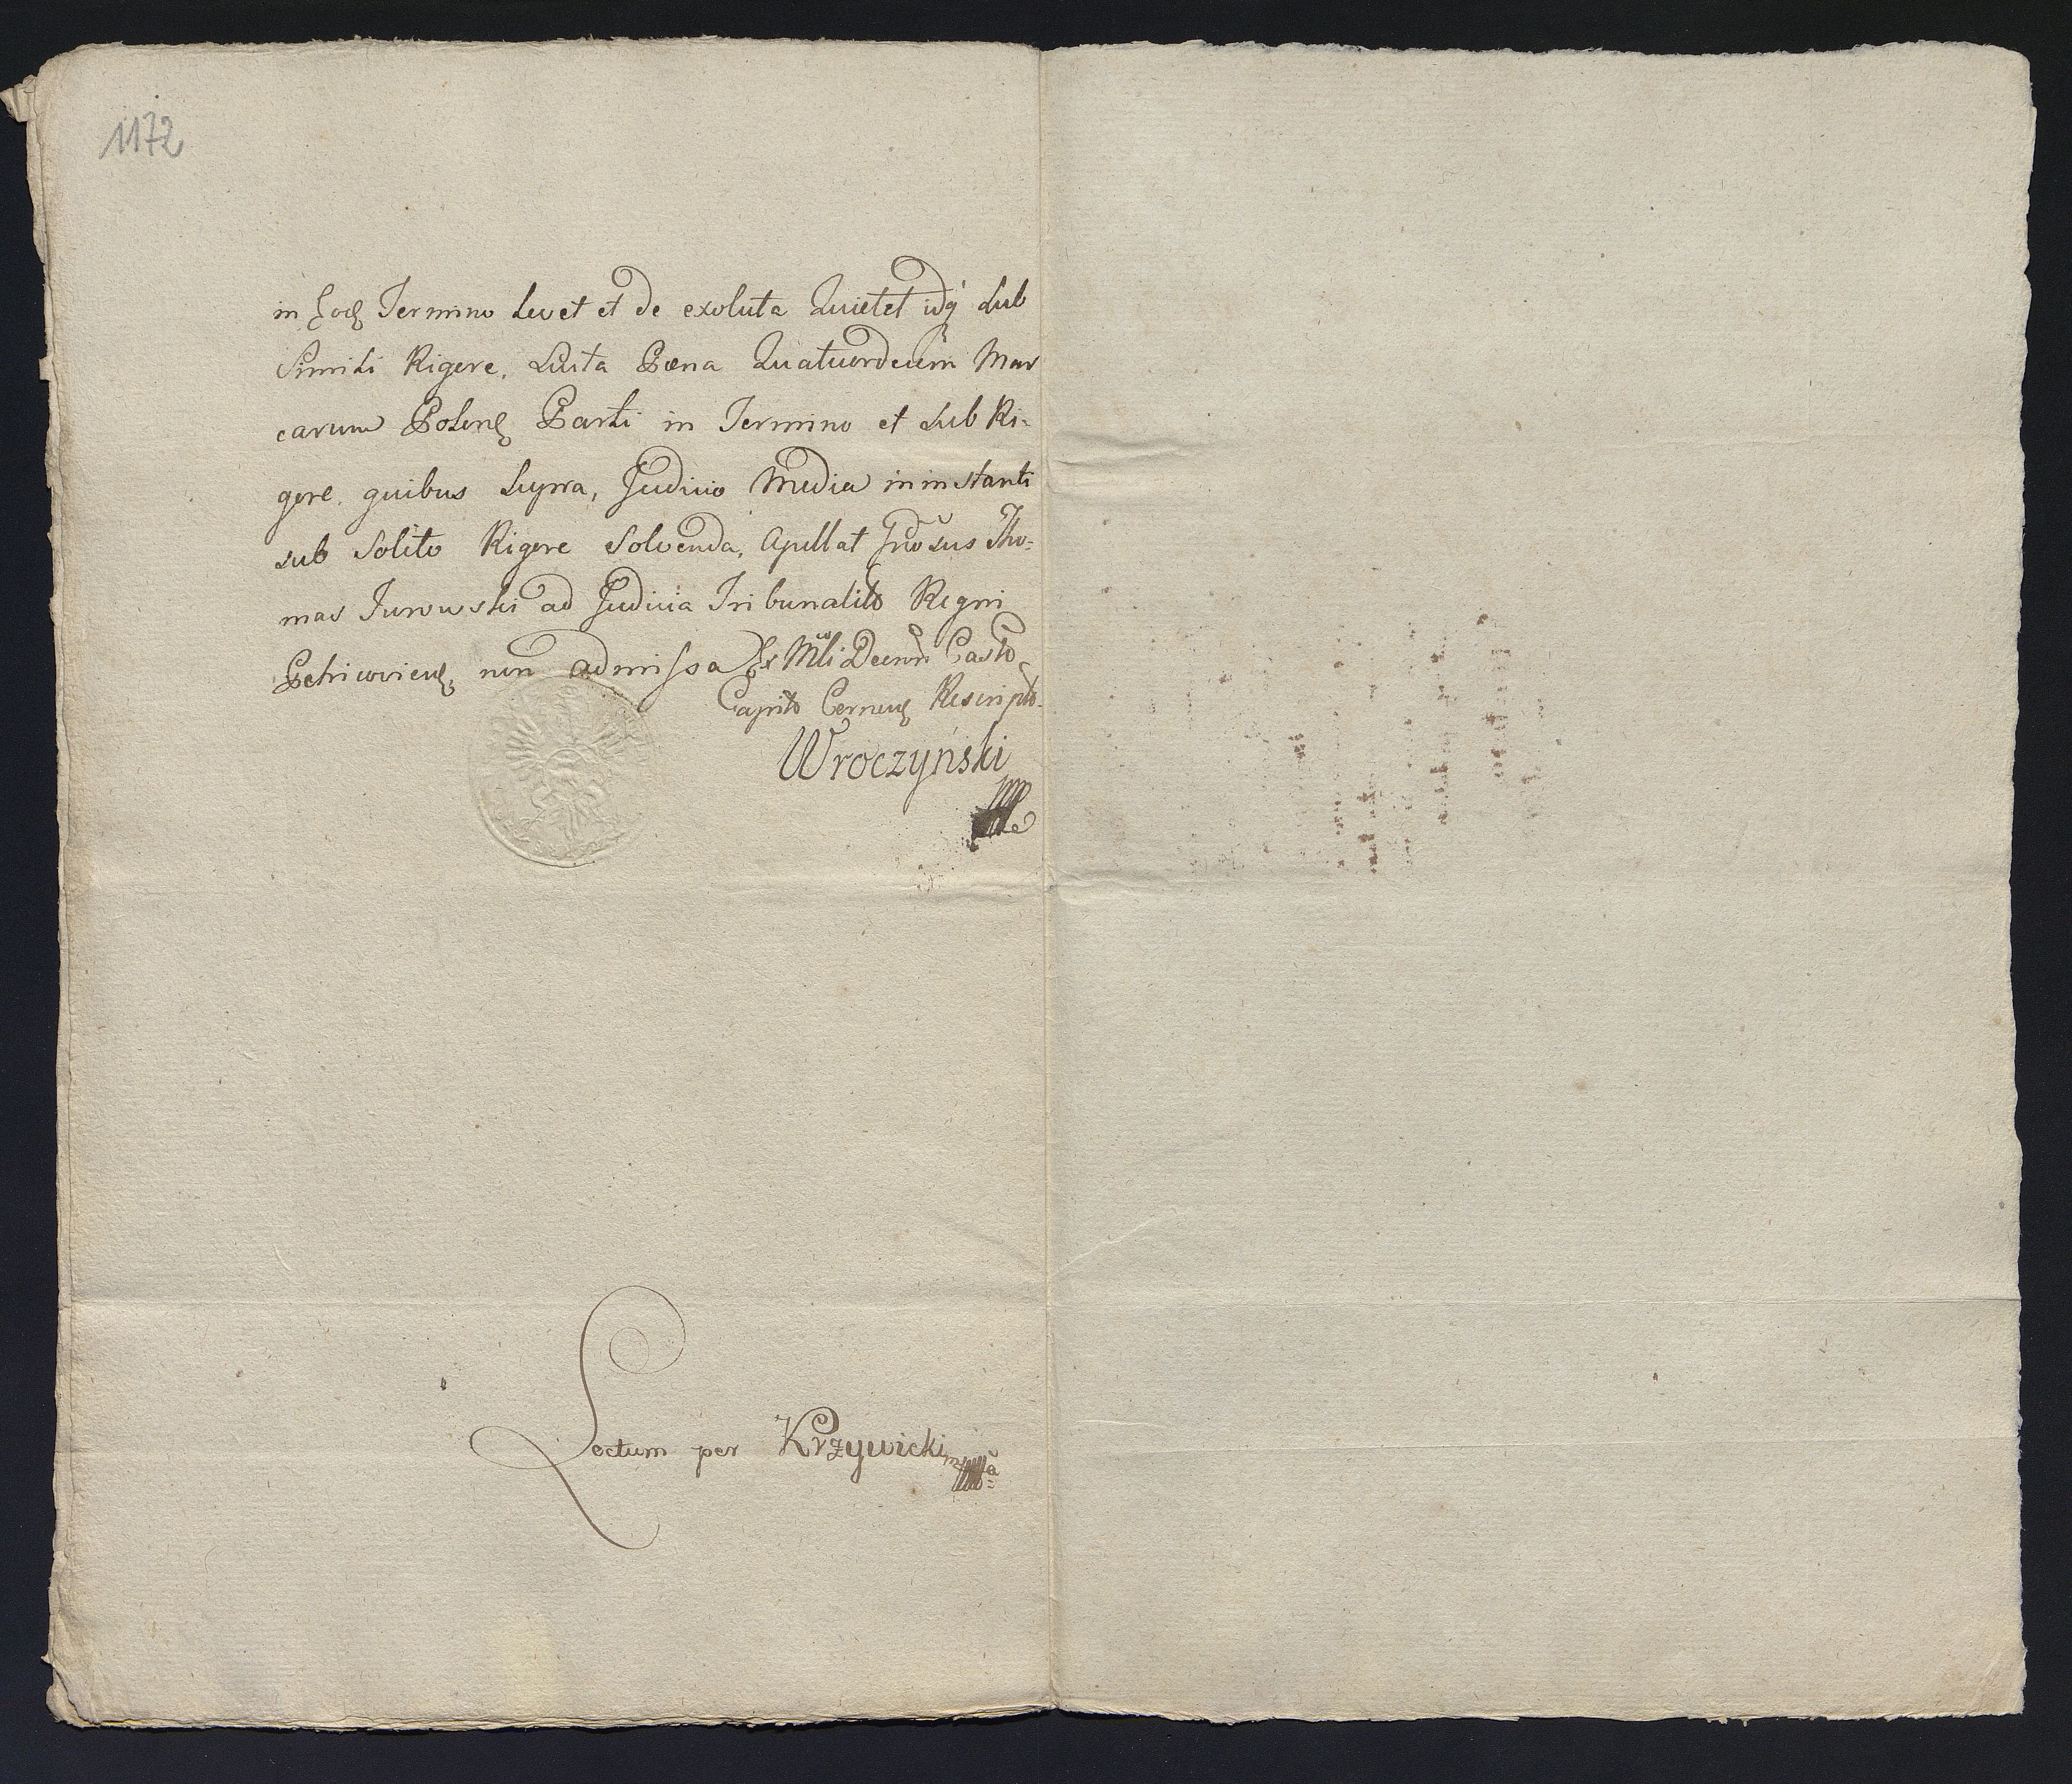 1172
in hocq Termino Levet et de exoluta Quietet idq sub
Simili Rigore. Luita Pœna Quatuordecim Mar
carum Polonq Parti in Termino et sub Ri-
gore quibus supra, Judicio Media in instanti
sub Solito Rigore Solvenda, Apellat Gnosus Tho-
mas Jurowski ad Judicia Tribunalito Regni
Petricovienq, non admissa Ex Decrm Casto
Capito Rescripto.
Wroczyński
Lectum per Krzywicki mpa